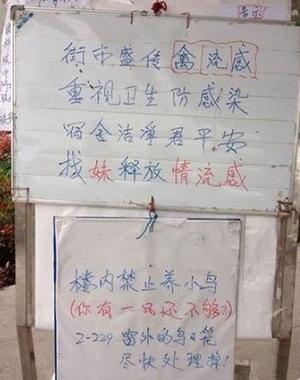 街市盛传禽流感
重视卫生防感染
宿舍洁净君平安
找妹释放情流感
楼内禁止养小鸟
(你有一只还不够?)
2-229 窗外的鸟笼
尽快处理掉!